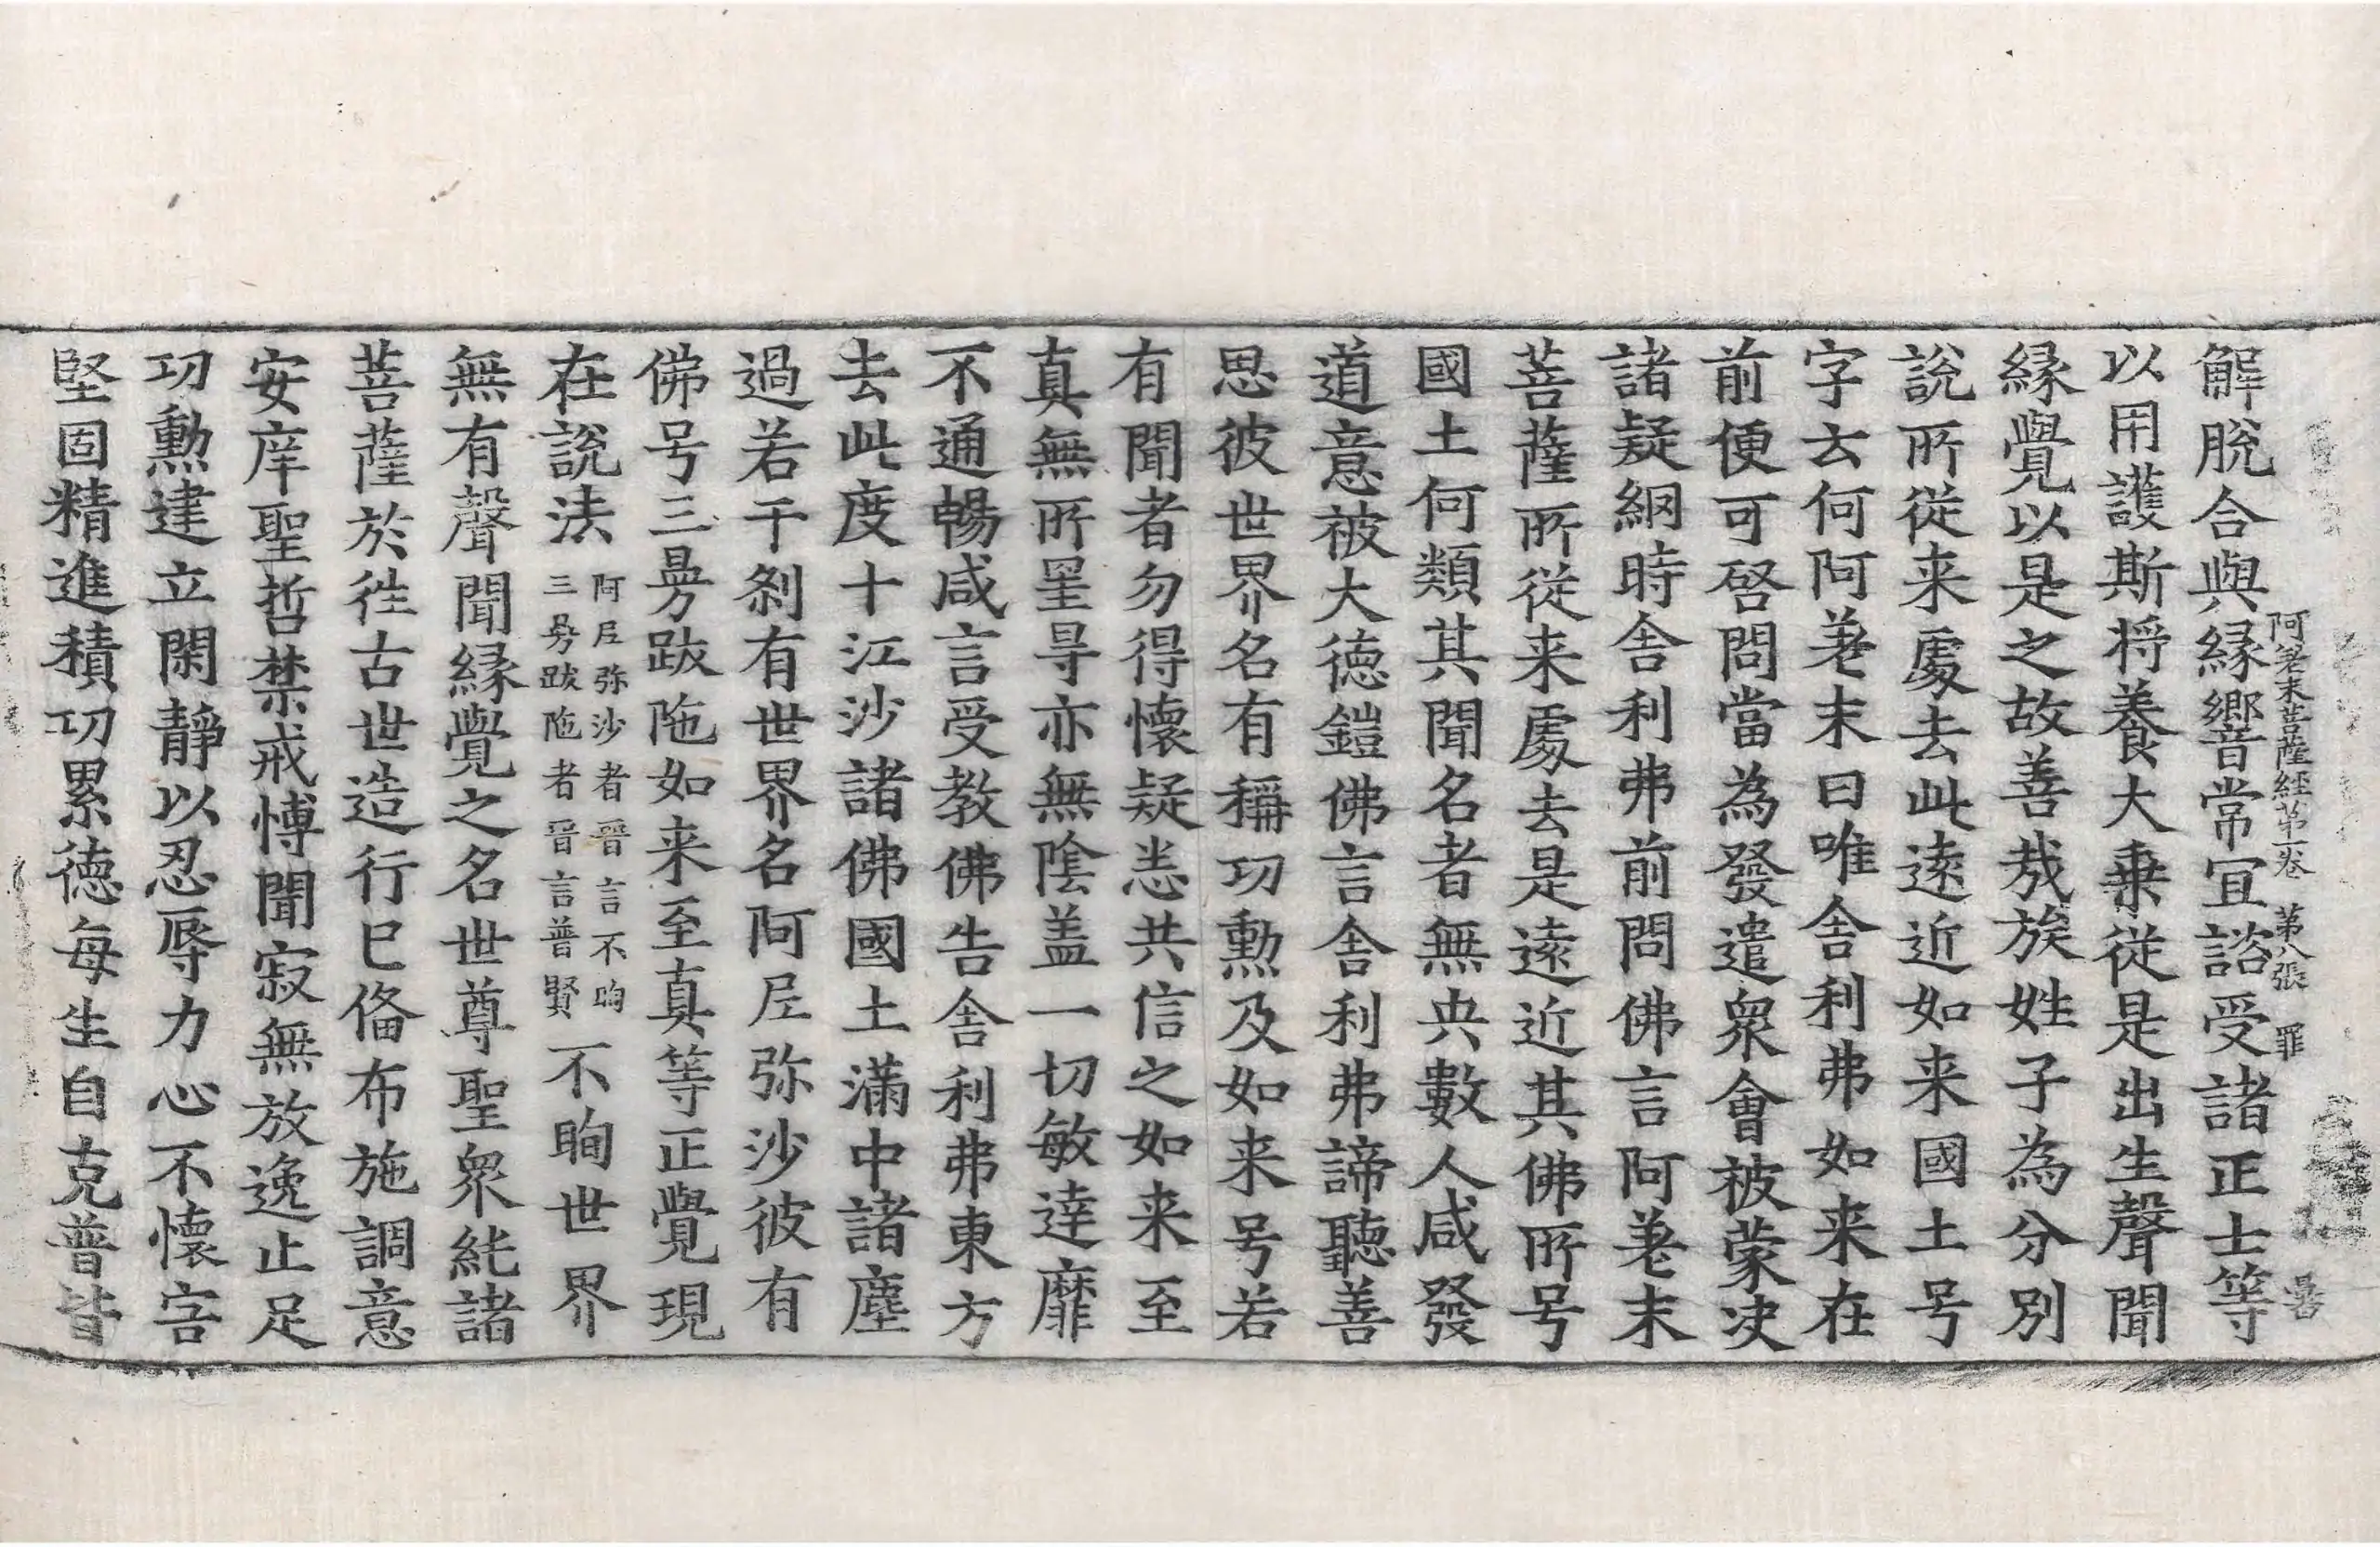 阿差末菩薩経第一卷 第八張 罪
解脫合與縁響常宜諮受諸正士等
以用護斯将養大乗従是出生聲聞
縁覺以是之故善哉族姓子為分別
說所從来處去此逺近如来國土号
字云何阿差末曰唯舎利弗如来在
前便可啓問當為發遣衆會被蒙决
諸疑網時舎利弗前問佛言阿差末
菩薩所從来處去是逺近其佛所号
國土何類其聞名者無央數人咸發
道意被大徳鎧佛言舎利弗諦聽善
思彼世界名有稱功勲及如来号若
有聞者勿得懐疑恙共信之如来至
真無所罣㝵亦無陰盖一切敏達靡
不通暢咸言受教佛告舎利弗東方
去此度十江沙諸佛國土滿中諸塵
過若干刹有世界名阿㞐弥沙彼有
佛号三曼跋陁如来至真等正覺現
在說法
阿㞐弥沙者晉言不眴
三曼跋陁者晉言普賢
不眴世界
無有聲聞縁覺之名世尊聖衆純諸
菩薩於徃古世造行已俻布施調意
安庠聖哲禁戒愽聞寂無放逸止足
功勲建立閑靜以忍辱力心不懐害
堅固精進積功累徳每生自克普皆